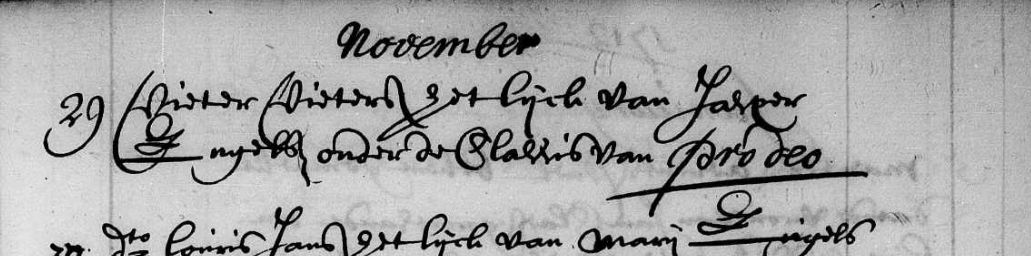 November
29 Pieter Pieters het lijck van Jasper
Engels onder de Classis van pro deo
dto louris Jans het lijck van Marij Engels